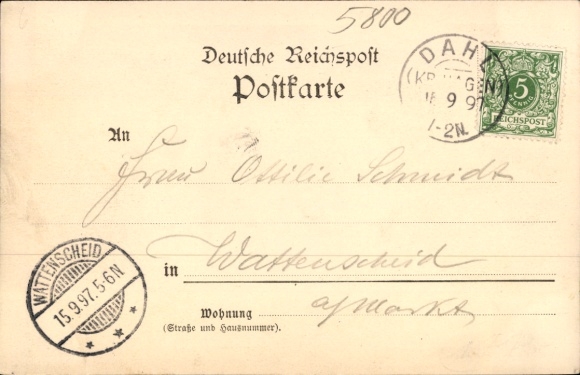 5800
Deutsche Reichspost
Postkarte
DAHL
(KR. HAGEN)
9 97
1-2N.
5
PFENNIG
REICHSPOST
An
Frau Ottilie Schmidt
in Wattenscheid
a/Markt
Wohnung
(Straße und Hausnummer).
WATTENSCHEID
15.9.97.5-6N